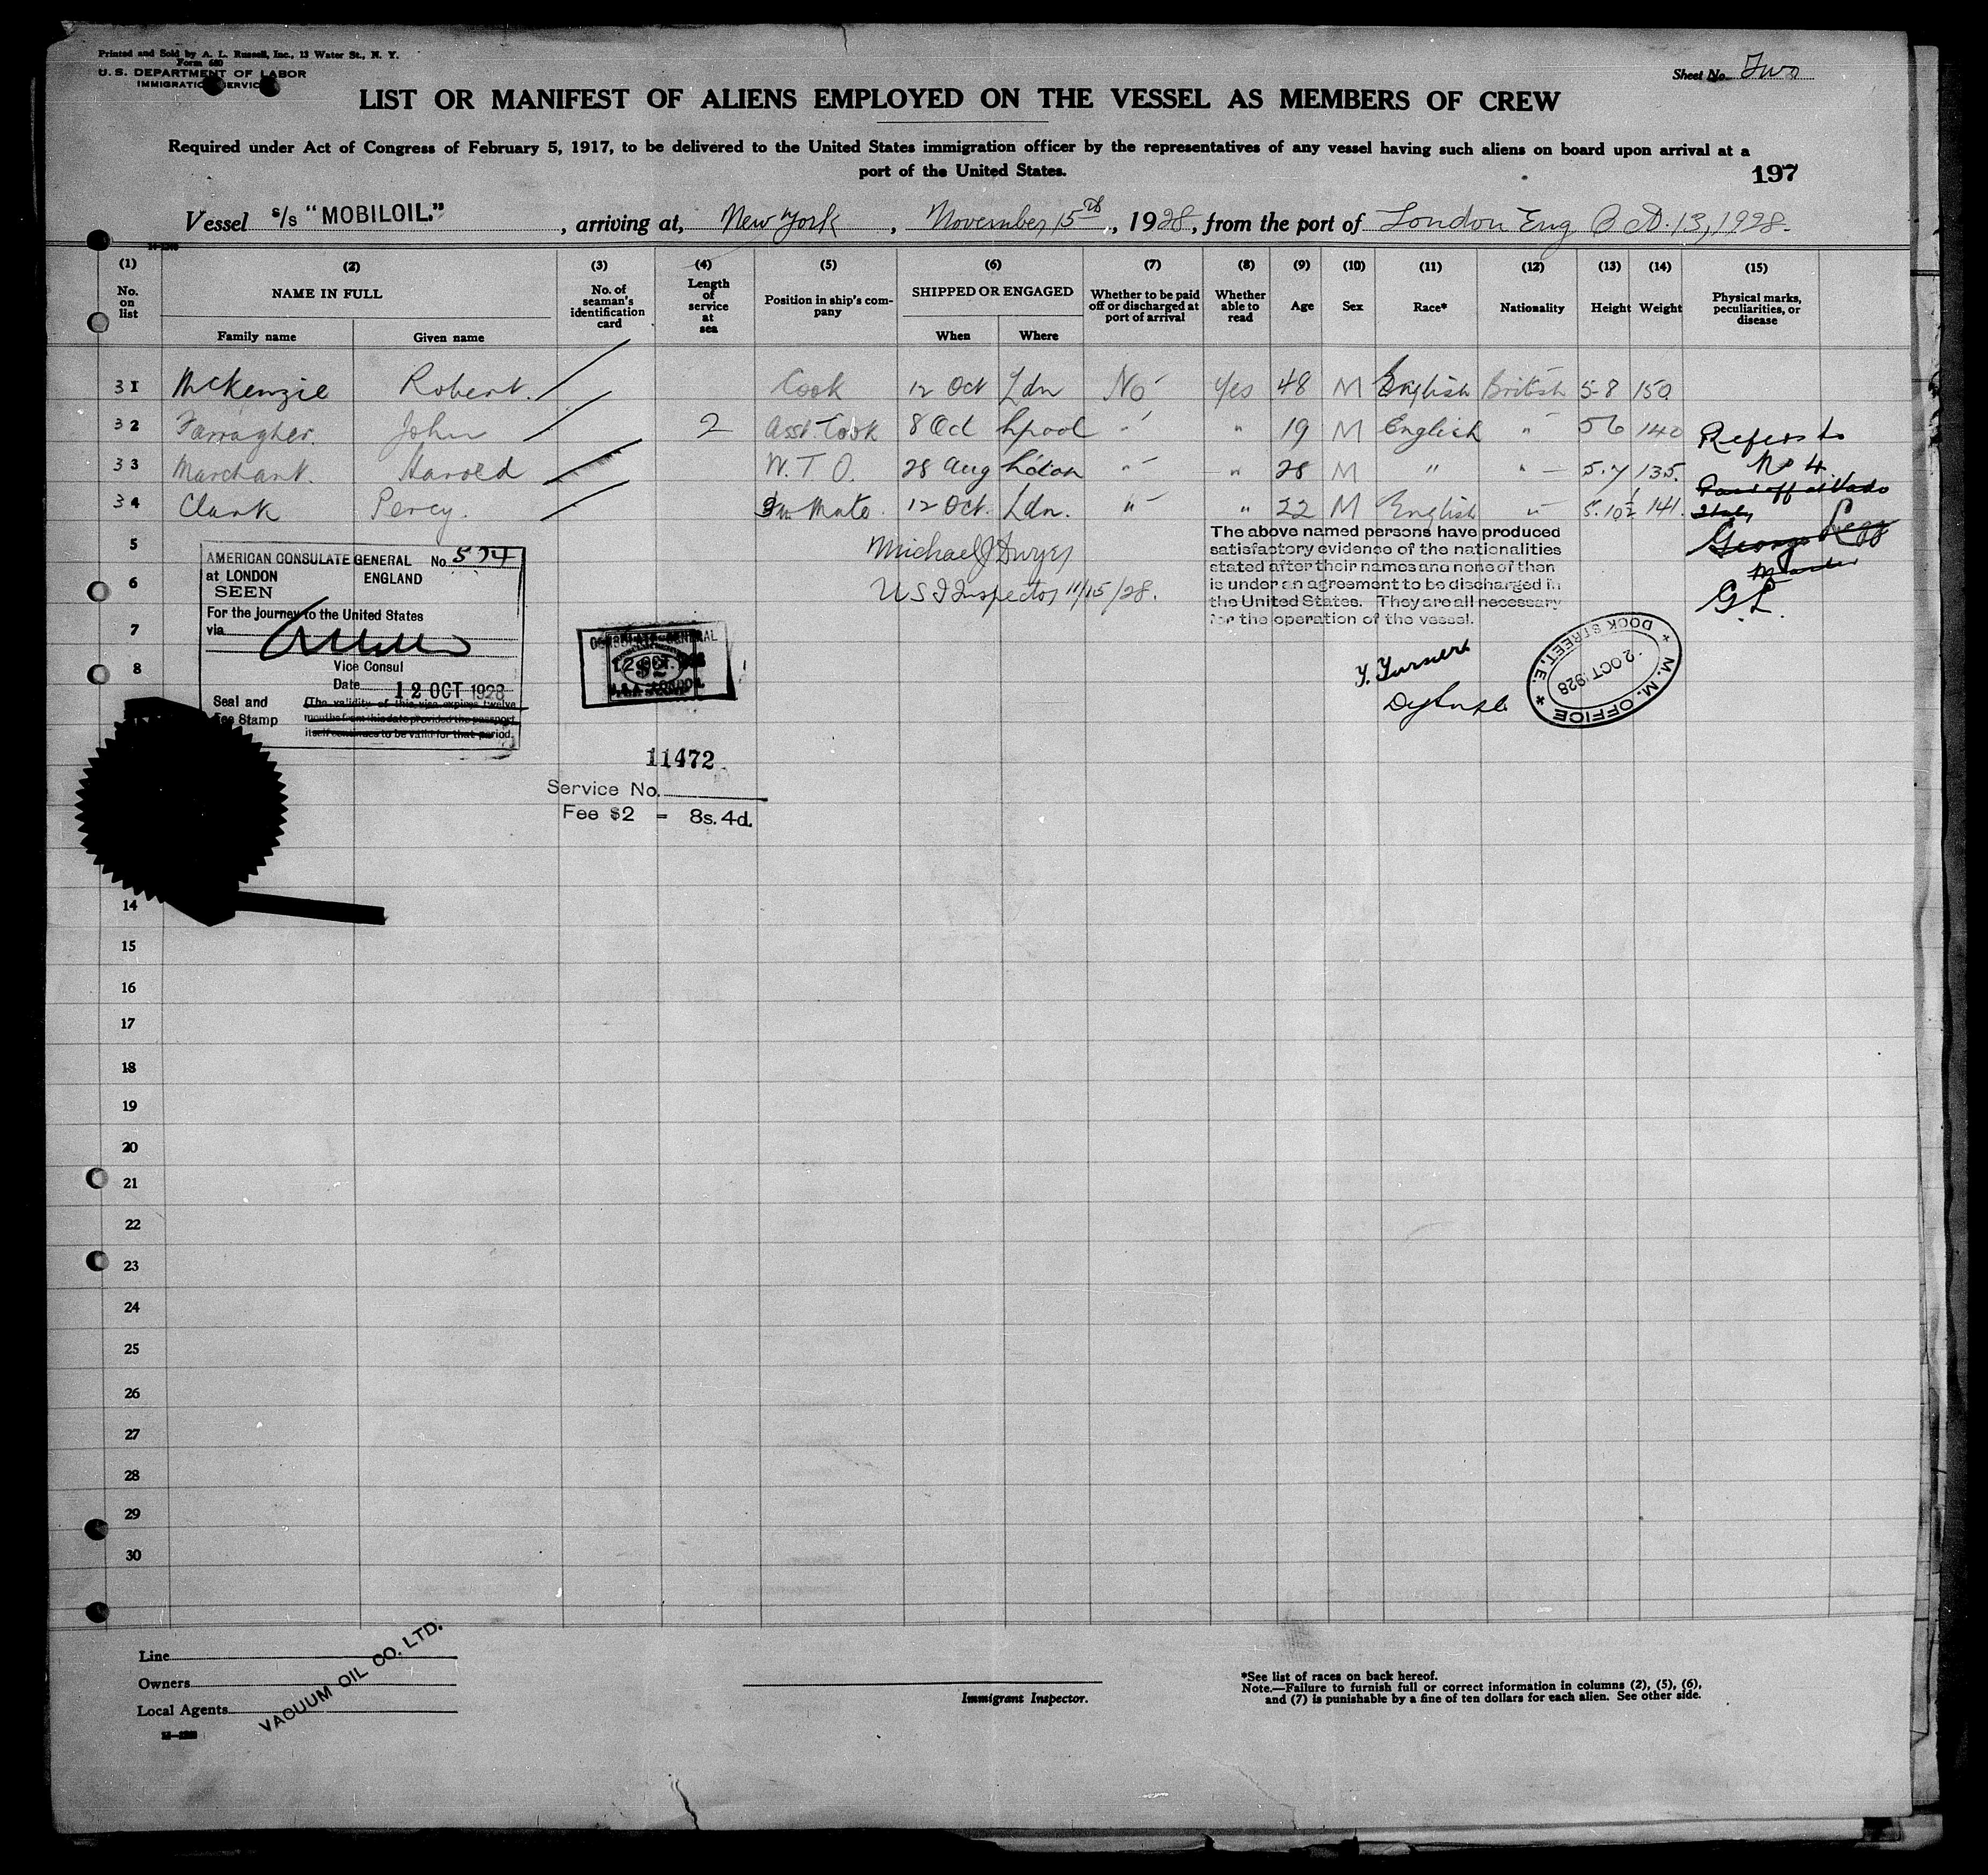 Printed and Sold by A. L. Russell, Inc., 13 Water St., N. Y.
Form 680
U. S. DEPARTMENT OF LABOR
IMMIGRATION SERVICE
Sheet No. Two
LIST OR MANIFEST OF ALIENS EMPLOYED ON THE VESSEL AS MEMBERS OF CREW
Required under Act of Congress of February 5, 1917, to be delivered to the United States immigration officer by the representatives of any vessel having such aliens on board upon arrival at a
port of the United States.
197
Vessel s/s "MOBILOIL.", arriving at, New York, November 15th, 1928, from the port of London Eng Oct. 13, 1928.
(1) (2) (3) (4) (5) (6) (7) (8) (9) (10) (11) (12) (13) (14) (15)
No. on list NAME IN FULL No. of seaman's identification card Length of service at sea Position in ship's company SHIPPED OR ENGAGED Whether to be paid off or discharged at port of arrival Whether able to read Age Sex Race* Nationality Height Weight Physical marks, peculiarities, or disease
Family name Given name When Where
31 McKenzie Robert. Cook 12 Oct Ldn No Yes 48 M English British 5-8 150
32 Farragher. John 2 Asst. Cook 8 Oct Lpool " " 19 M English " 56 140 Refers to
33 Marchant. Harold W. T. O. 28 Aug London " " 28 M " " 5.7 135. No 4.
34 Clark Percy. Mate. 12 Oct. Ldn. " " 22 M English " 5.10½ 141. Paid off at Vado
Italy
George Legg
Master
G L.
5
6
7
8
Michael J Dwyer
U S I Inspector 11/15/28.
The above named persons have produced
satisfactory evidence of the nationalities
stated after their names and none of then
is under an agreement to be discharged in
the United States. They are all necessary
for the operation of the vessel.
Y. Turner
M. M. OFFICE
DOCK STREET. E.
OCT 1928
AMERICAN CONSULATE GENERAL No. 574
at LONDON ENGLAND
SEEN
For the journey to the United States
via
Vice Consul
Date 12 OCT 1928
Seal and
Fee Stamp
(The validity of this visa expires twelve
months from this date provided the passport
itself continues to be valid for that period.
CONSULATE GENERAL
12 OCT. 1928
$2
U.S.A. LONDON.
11472
Service No.
Fee $2 = 8s. 4d.
14
15
16
17
18
19
20
21
22
23
24
25
26
27
28
29
30
Line
Owners
Local Agents
VACUUM OIL CO. LTD.
Immigrant Inspector.
*See list of races on back hereof.
Note.—Failure to furnish full or correct information in columns (2), (5), (6),
and (7) is punishable by a fine of ten dollars for each alien. See other side.